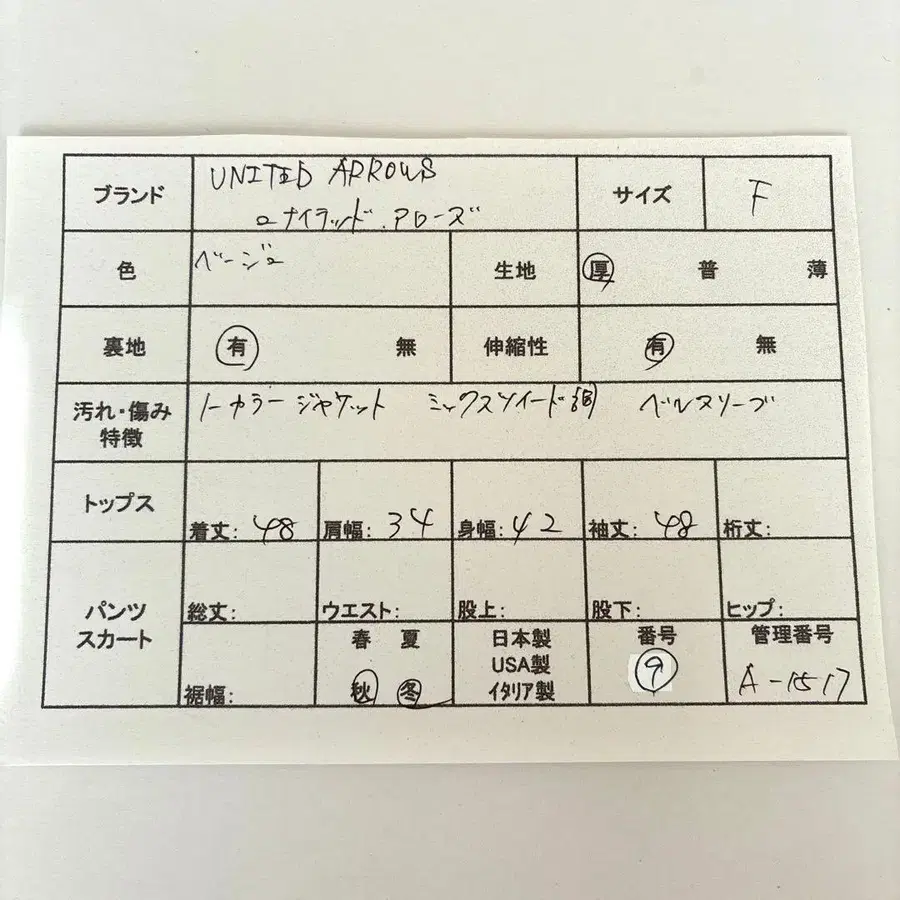 ブランド UNITED ARROWS サイズ F
ユナイテッド.アローズ
色 ベージュ 生地 厚 普 薄
裏地 有 無 伸縮性 有 無
汚れ・傷み ノーカラー ジャケット ミックスツイード調 ベルスリーブ
特徴
トップス 着丈: 48 肩幅: 34 身幅: 42 袖丈: 48 裄丈:
パンツ スカート 総丈: ウエスト: 股上: 股下: ヒップ:
裾幅: 春 夏 秋 冬 日本製 USA製 イタリア製 番号 9 管理番号 A-1517